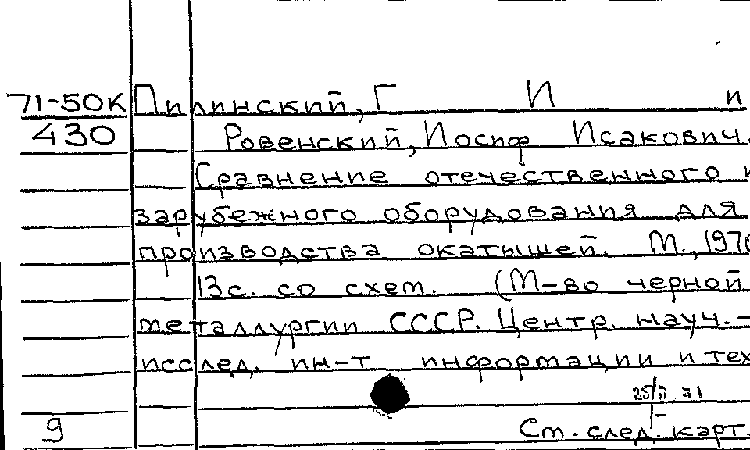 71-50К Пилинский, Г И и
430 Ровенский, Иосиф Исакович.
Сравнение отечественного и
зарубежного оборудования для
производства окатышей. М., 1970
13с. со схем. (М-во черной
металлургии СССР. Центр. науч.-
исслед. ин-т информации и тех
9 Ст. след. карт